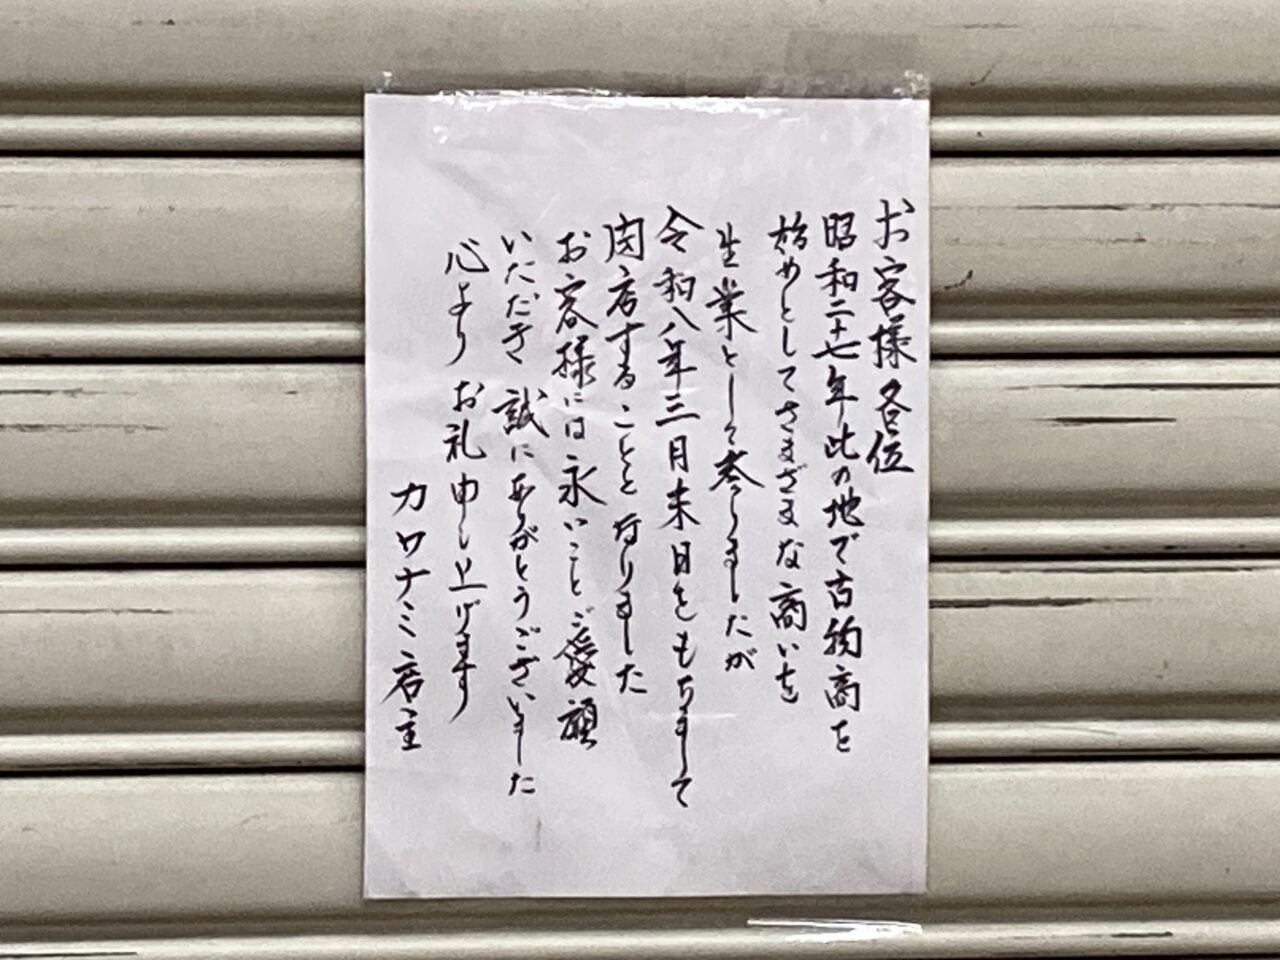 お客様各位
昭和二十七年此の地で古物商を
始めとしてさまざまな商いを
生業として参りましたが
令和八年三月末日をもちまして
閉店することと なりました
お客様には永いことご愛顧
いただき 誠にありがとうございました
心より お礼申し上げます
カワナミ店主